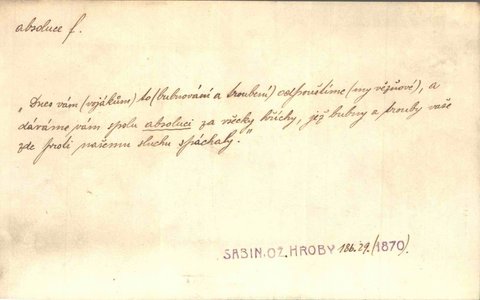 absoluce f.
„Dnes vám (vojákům) to (bubnování a troubení) odpouštíme (my vězňové), a
dáváme vám spolu absoluci za všecky hříchy, jež bubny a trouby vaše
zde proti našemu sluchu spáchaly."
SABIN. OŽ. HROBY 186.29. (1870).